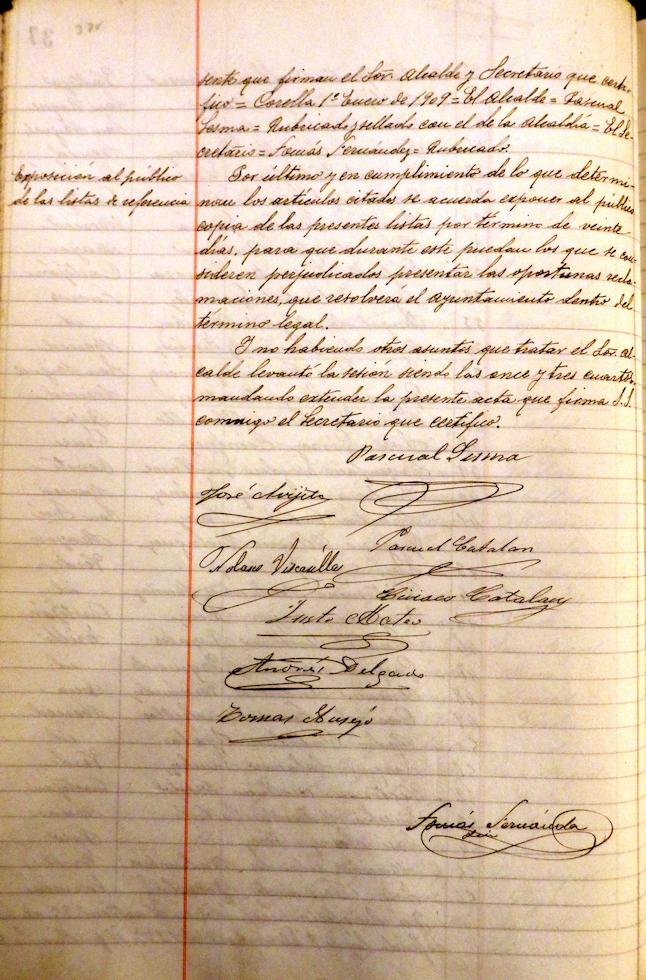 sente que firman el Sor. Alcalde y Secretario que certi-
fico = Corella 1º Enero de 1909 = El Alcalde = Pascual
Sesma = Rubricado y sellado con el de la Alcaldía = El Se-
cretario = Tomás Fernández = Rubricado.
Exposición al público
de las listas de referencia
Por último y en cumplimiento de lo que determi-
nan los artículos citados se acuerda exponer al público
copia de las presentes listas por término de veinte
días, para que durante este puedan los que se con-
sideren perjudicados presentar las oportunas recla-
maciones, que resolverá el Ayuntamiento dentro del
término legal.
Y no habiendo otros asuntos que tratar el Sor. Al-
calde levantó la sesión siendo las once y tres cuartos
mandando extender la presente acta que firma S.S.
conmigo el Secretario que certifico.
Pascual Sesma
José
Pascual Catalan
Ciriaco Catalan
Justo Mateo
Andrés Delgado
Tomas
Tomás Fernández